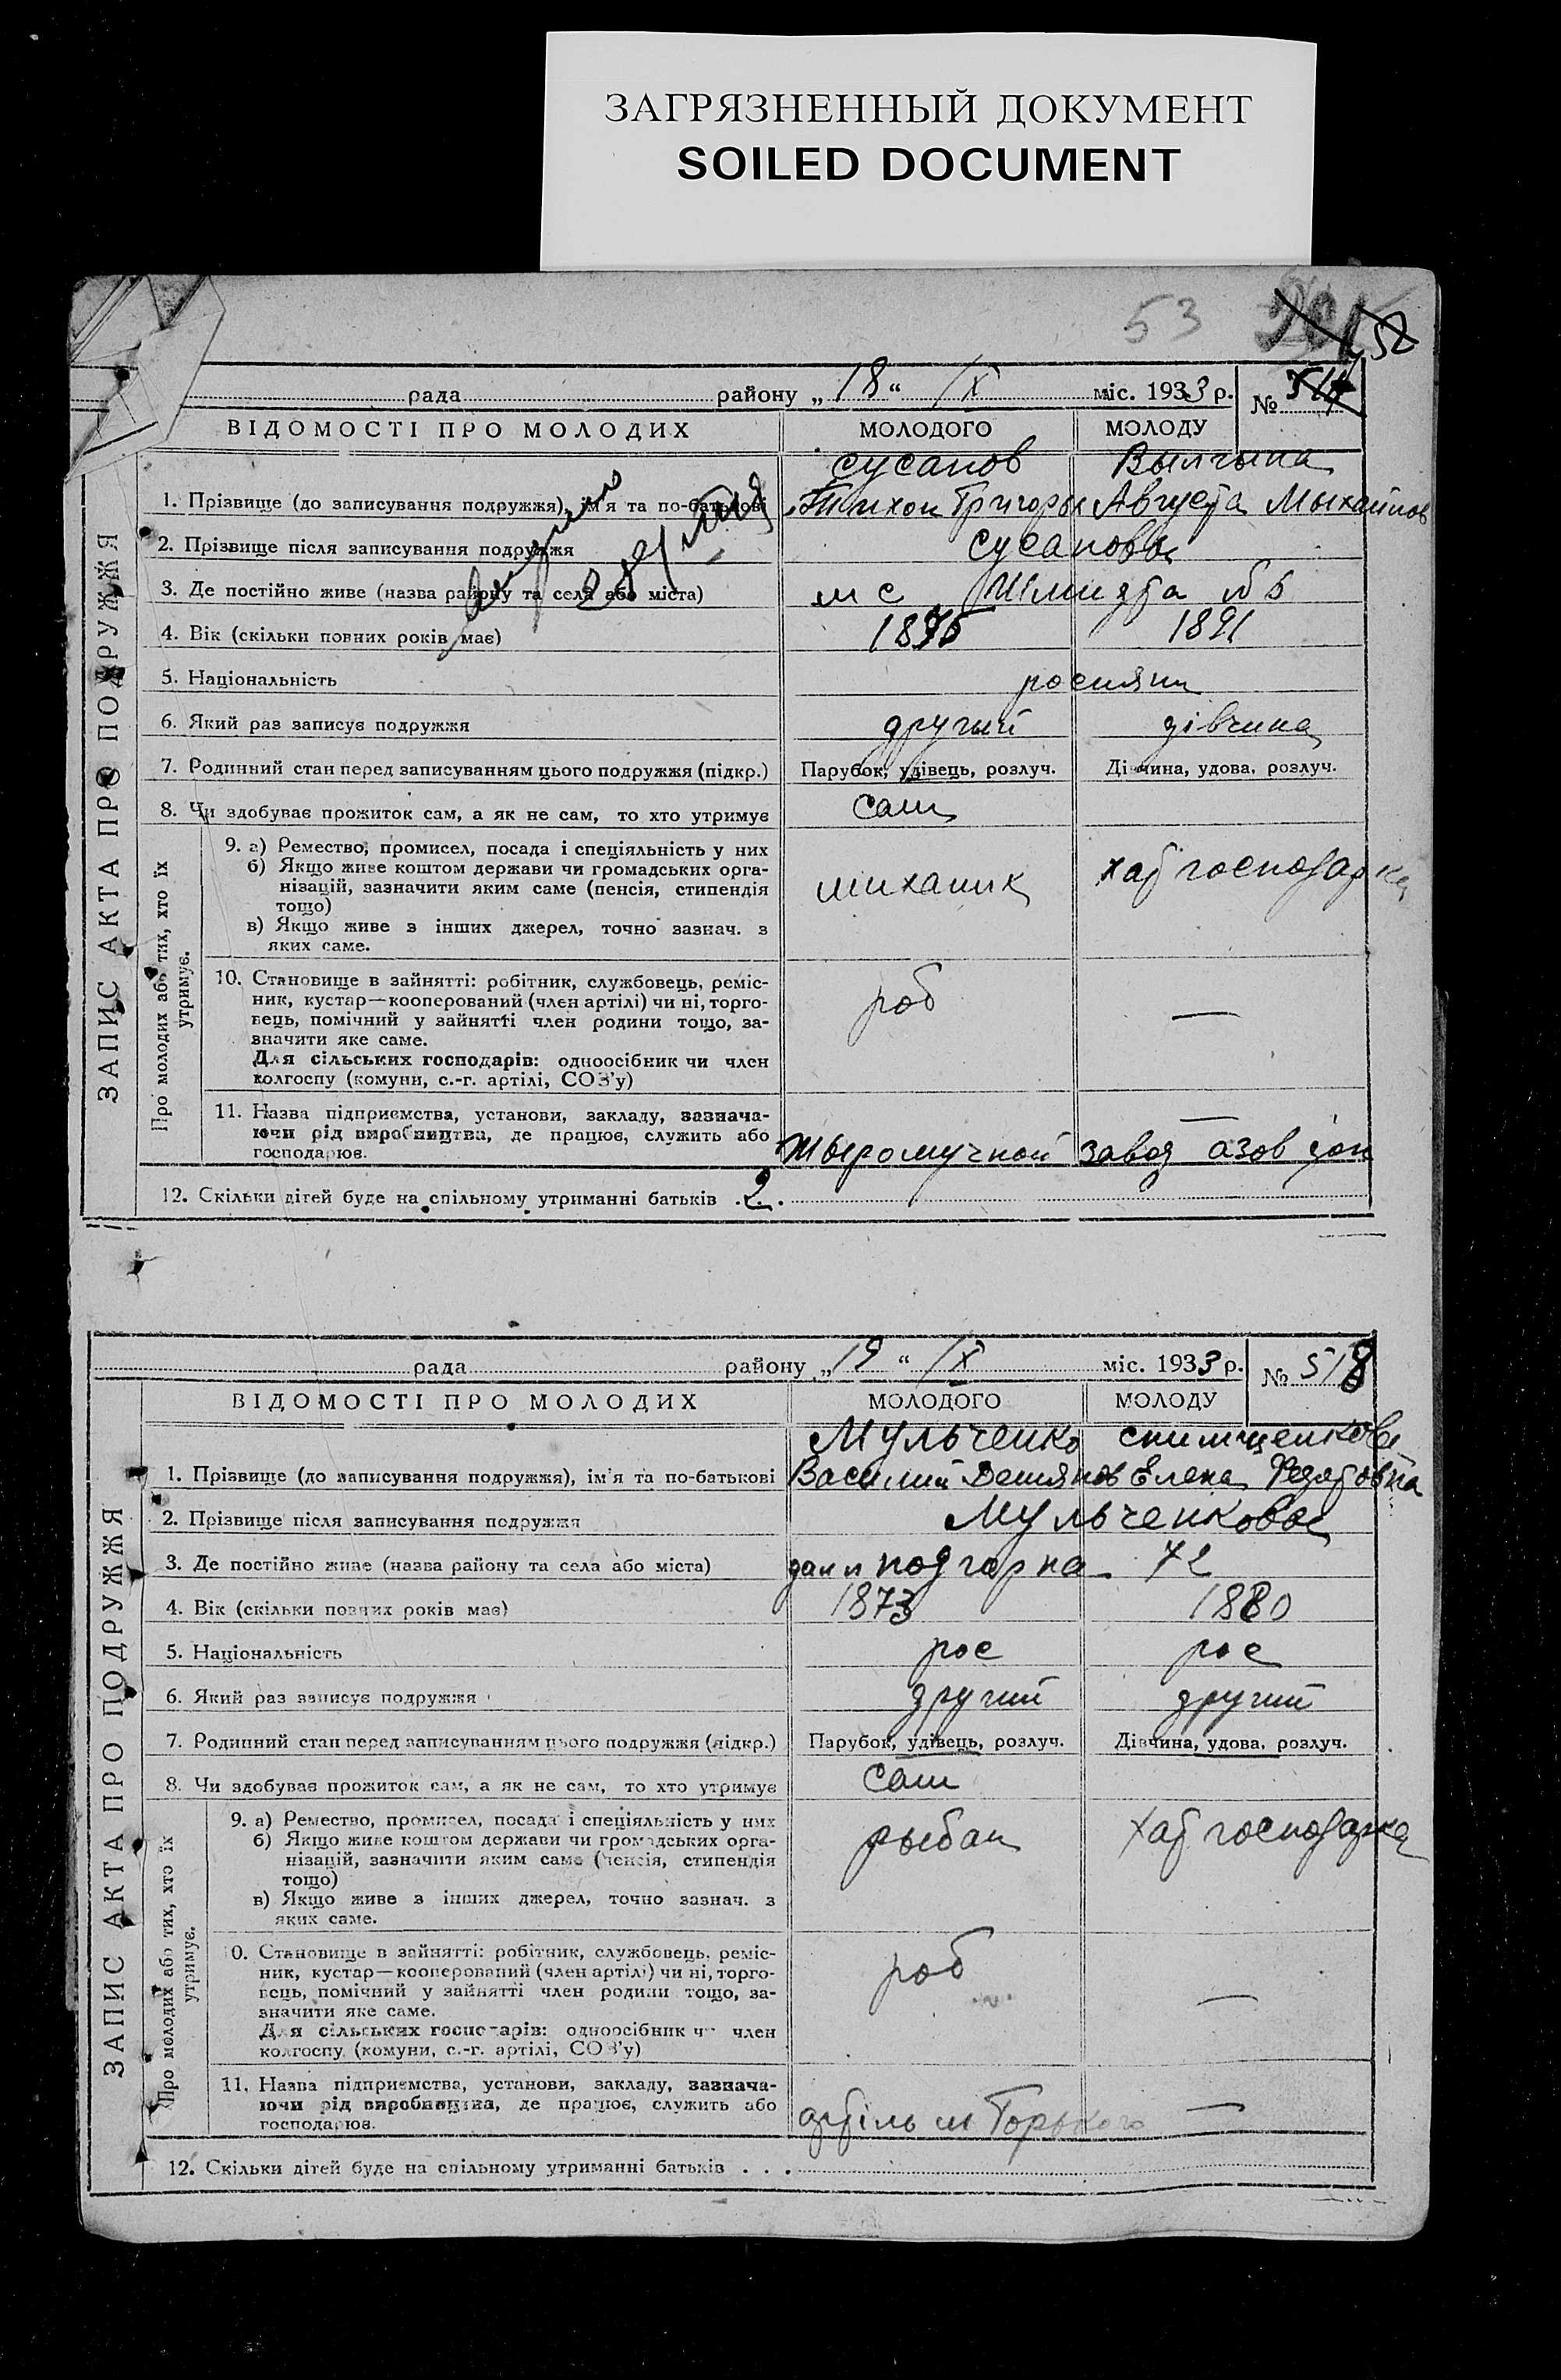 ЗАГРЯЗНЕННЫЙ ДОКУМЕНТ
SOILED DOCUMENT
53
52
рада району „18“ IX міс. 1933 р. №
ВІДОМОСТІ ПРО МОЛОДИХ МОЛОДОГО МОЛОДУ
сусанов
1. Прізвище (до записування подружжя), ім'я та по-батькові Тихон Григорьк Августа Мыхайлов
2. Прізвище після записування подружжя сусановы
3. Де постійно живе (назва району та села або міста) м с Шмидта
4. Вік (скільки повних років має) 1891
5. Національність росияни
6. Який раз записує подружжя другий дівчина
7. Родинний стан перед записуванням цього подружжя (підкр.) Парубок, удівець, розлуч. Дівчина, удова, розлуч.
8. Чи здобуває прожиток сам, а як не сам, то хто утримує сам
ЗАПИС АКТА ПРО ПОДРУЖЖЯ
Про молодих або тих, хто їх утримує.
9. а) Ремество, промисел, посада і спеціяльність у них
б) Якщо живе коштом держави чи громадських орга-
нізацій, зазначити яким саме (пенсія, стипендія
тощо)
в) Якщо живе з інших джерел, точно зазнач. з
яких саме.
миханик хат господарка
10. Становище в зайнятті: робітник, службовець, реміс-
ник, кустар—кооперований (член артілі) чи ні, торго-
вець, помічний у зайнятті член родини тощо, за-
значити яке саме.
Для сільських господарів: одноосібник чи член
колгоспу (комуни, с.-г. артілі, СОЗ'у)
роб —
11. Назва підприємства, установи, закладу, зазнача-
ючи рід виробництва, де працює, служить або
господарює.
—
завод азов
12. Скільки дітей буде на спільному утриманні батьків . 2 .
рада району „19“ IX міс. 1933 р. № 518
ВІДОМОСТІ ПРО МОЛОДИХ МОЛОДОГО МОЛОДУ
Мульченко
1. Прізвище (до записування подружжя), ім'я та по-батькові Василий Демянов Елена
2. Прізвище після записування подружжя Мульченковы
3. Де постійно живе (назва району та села або міста) подгорна 72
4. Вік (скільки повних років має) 1873 1880
5. Національність рос рос
6. Який раз записує подружжя другий другий
7. Родинний стан перед записуванням цього подружжя (підкр.) Парубок, удівець, розлуч. Дівчина, удова, розлуч.
8. Чи здобуває прожиток сам, а як не сам, то хто утримує сам
ЗАПИС АКТА ПРО ПОДРУЖЖЯ
Про молодих або тих, хто їх утримує.
9. а) Ремество, промисел, посада і спеціяльність у них
б) Якщо живе коштом держави чи громадських орга-
нізацій, зазначити яким саме (пенсія, стипендія
тощо)
в) Якщо живе з інших джерел, точно зазнач. з
яких саме.
рыбак хат господарка
10. Становище в зайнятті: робітник, службовець, реміс-
ник, кустар—кооперований (член артілі) чи ні, торго-
вець, помічний у зайнятті член родини тощо, за-
значити яке саме.
Для сільських господарів: одноосібник чи член
колгоспу (комуни, с.-г. артілі, СОЗ'у)
роб —
11. Назва підприємства, установи, закладу, зазнача-
ючи рід виробництва, де працює, служить або
господарює.
артіль м Горького —
12. Скільки дітей буде на спільному утриманні батьків . . .